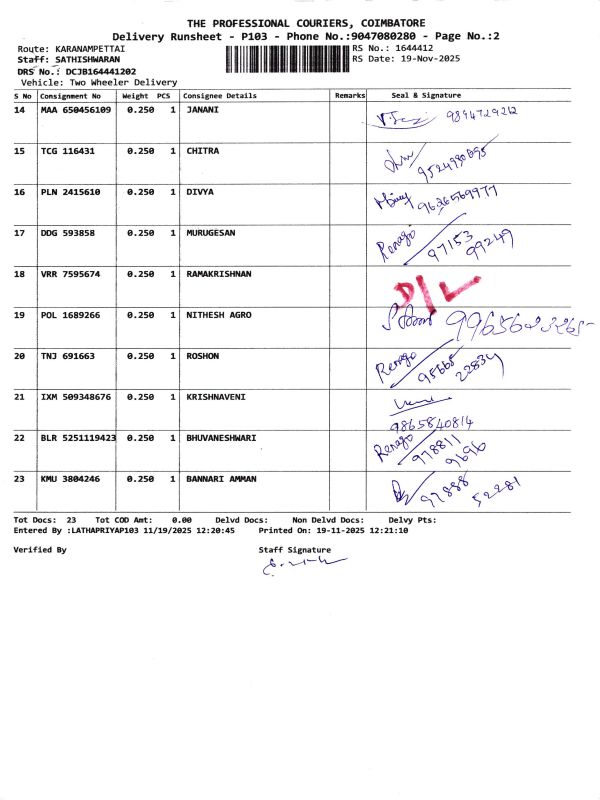 THE PROFESSIONAL COURIERS, COIMBATORE
Delivery Runsheet - P103 - Phone No.:9047080280 - Page No.:2
Route: KARANAMPETTAI
RS No.: 1644412
Staff: SATHISHWARAN
RS Date: 19-Nov-2025
DRS No.: DCJB164441202
Vehicle: Two Wheeler Delivery
S No Consignment No Weight PCS Consignee Details Remarks Seal & Signature
14 MAA 650456109 0.250 1 JANANI
15 TCG 116431 0.250 1 CHITRA
16 PLN 2415610 0.250 1 DIVYA 9636569977
17 DDG 593858 0.250 1 MURUGESAN 97153
99249
18 VRR 7595674 0.250 1 RAMAKRISHNAN D/L
19 POL 1689266 0.250 1 NITHESH AGRO
20 TNJ 691663 0.250 1 ROSHON 95665
22834
21 IXM 509348676 0.250 1 KRISHNAVENI
9865840814
22 BLR 5251119423 0.250 1 BHUVANESHWARI 978811
9696
23 KMU 3804246 0.250 1 BANNARI AMMAN 97888
52281
Tot Docs: 23 Tot COD Amt: 0.00 Delvd Docs: Non Delvd Docs: Delvy Pts:
Entered By :LATHAPRIYAP103 11/19/2025 12:20:45 Printed On: 19-11-2025 12:21:10
Verified By Staff Signature